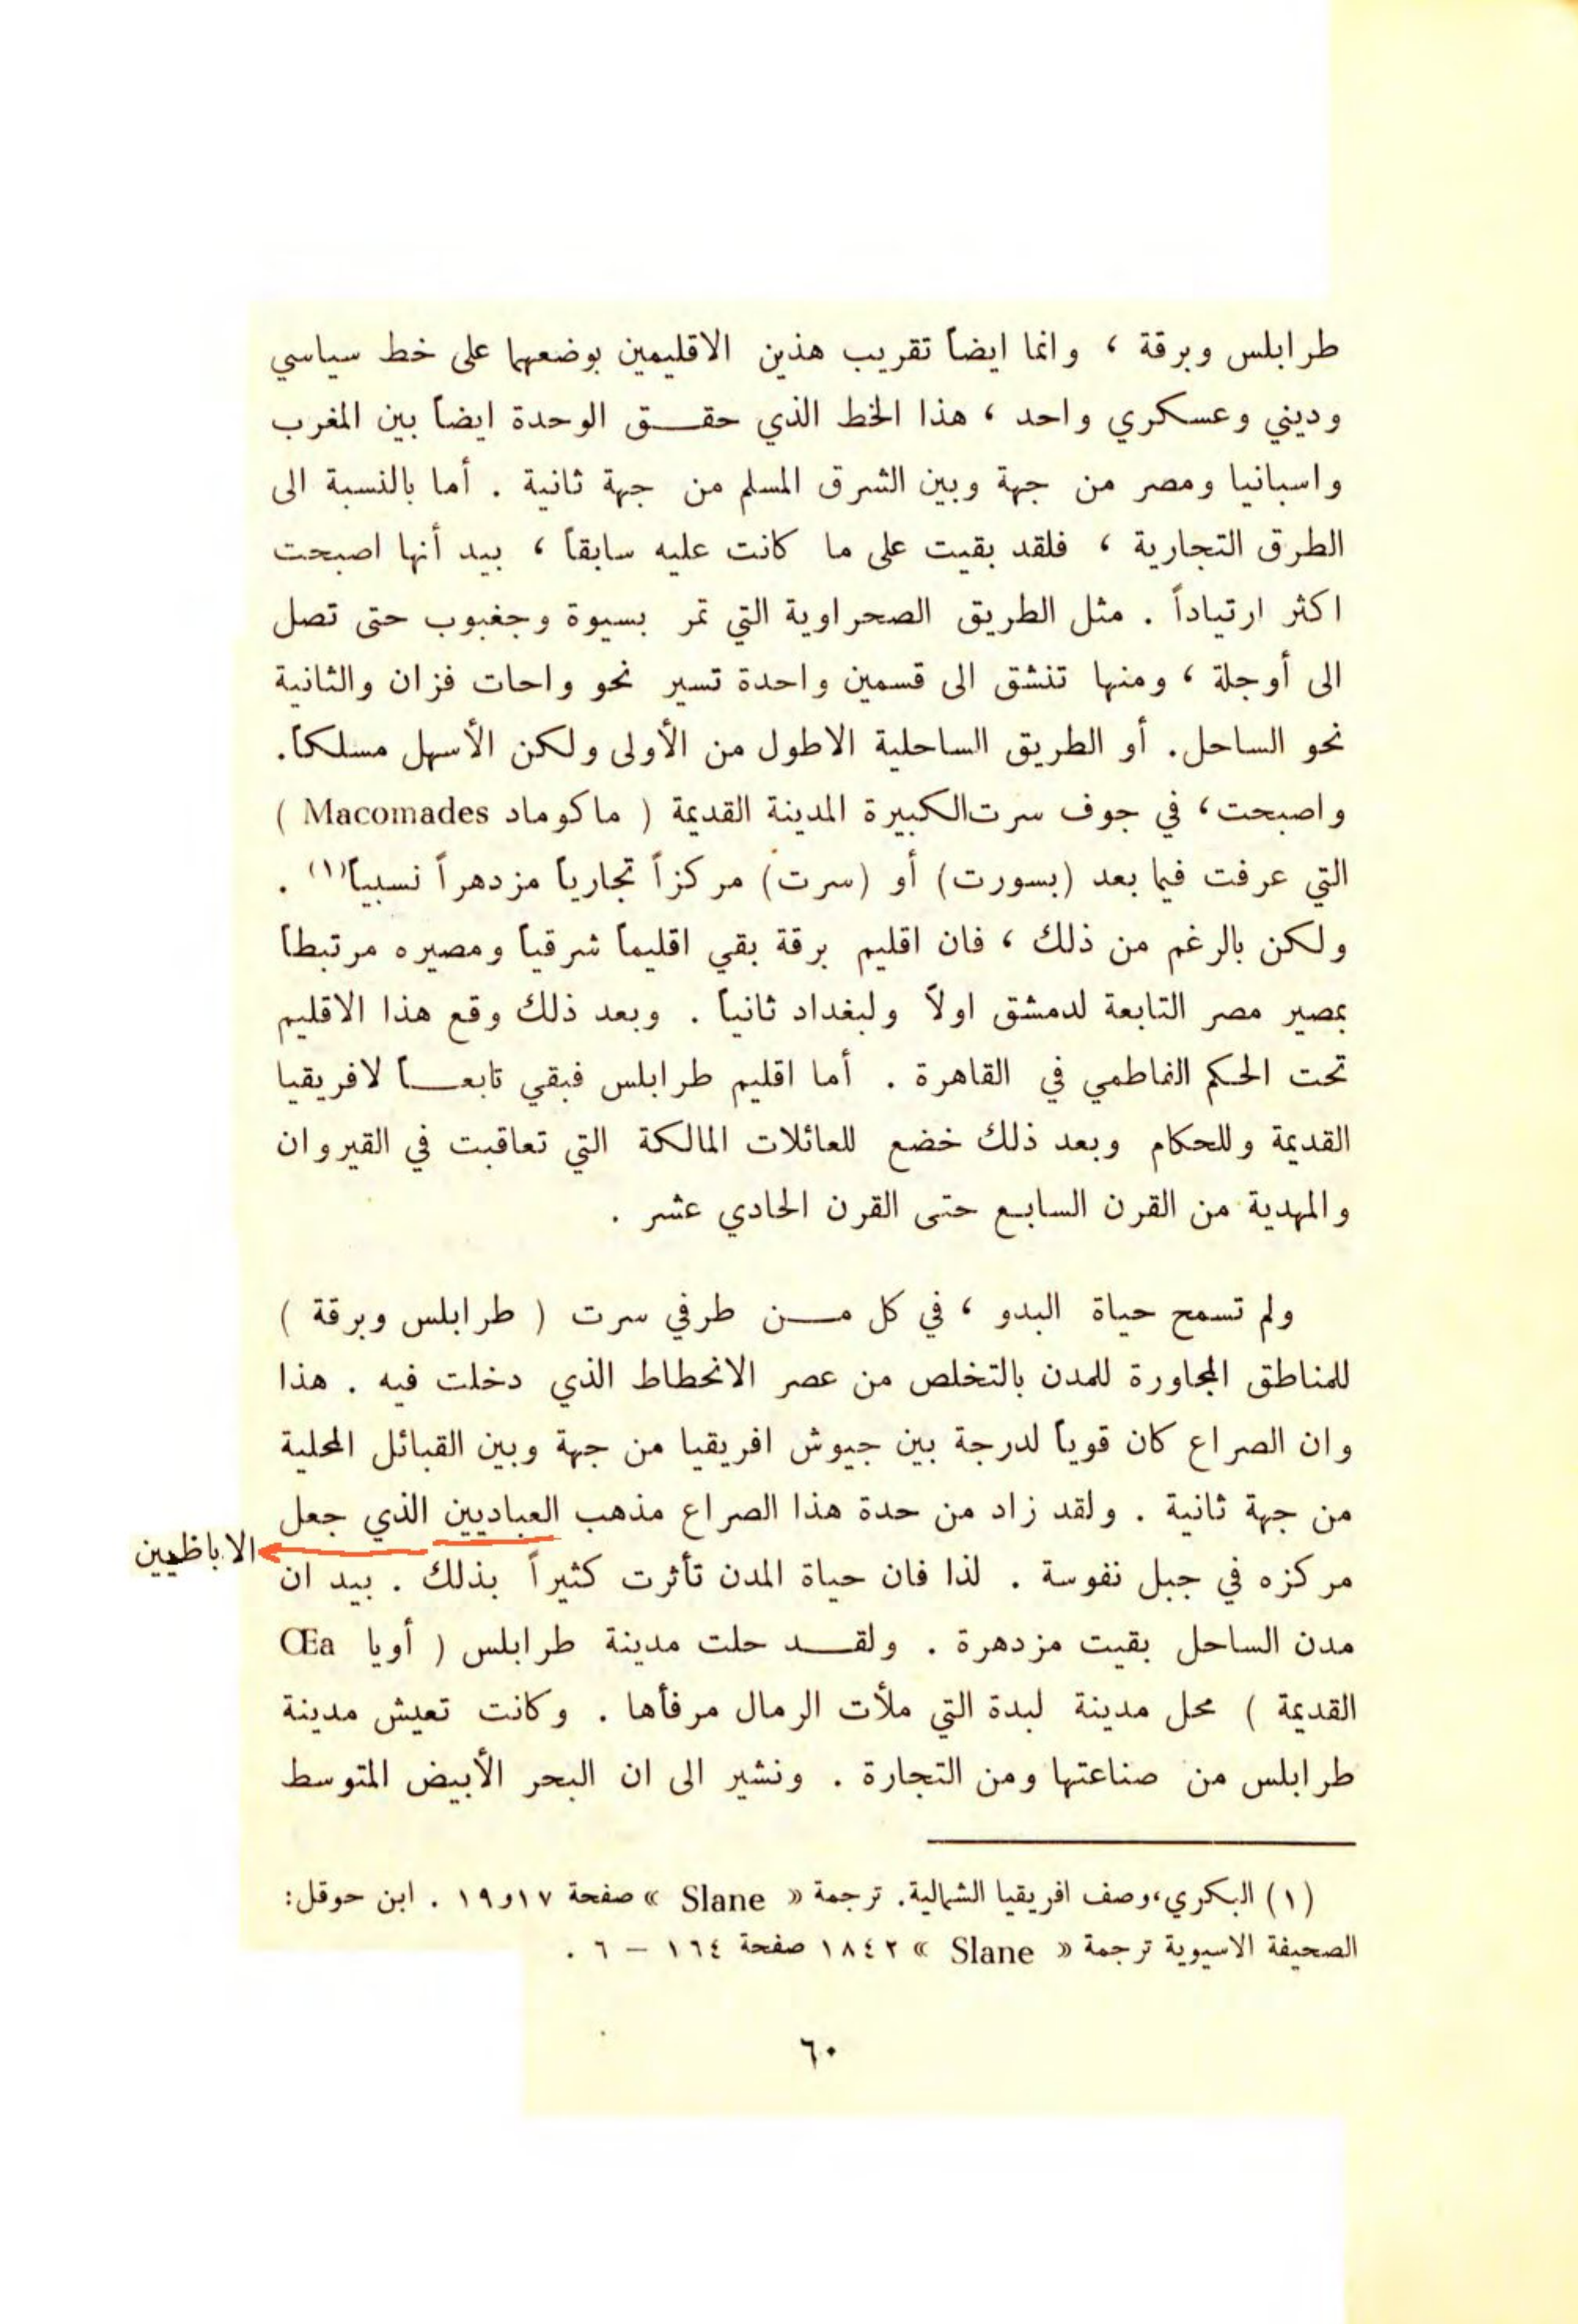 طرابلس وبرقة ، وانما ايضاً تقريب هذين الاقليمين بوضعهما على خط سياسي
وديني وعسكري واحد ، هذا الخط الذي حقـــق الوحدة ايضاً بين المغرب
واسبانيا ومصر من جهة وبين الشرق المسلم من جهة ثانية . أما بالنسبة الى
الطرق التجارية ، فلقد بقيت على ما كانت عليه سابقاً ، بيد أنها اصبحت
اكثر ارتياداً . مثل الطريق الصحراوية التي تمر بسيوة وجغبوب حتى تصل
الى أوجلة ، ومنها تنشق الى قسمين واحدة تسير نحو واحات فزان والثانية
نحو الساحل. أو الطريق الساحلية الاطول من الأولى ولكن الأسهل مسلكاً.
واصبحت، في جوف سرت الكبيرة المدينة القديمة ( ماكوماد Macomades )
التي عرفت فيما بعد (بسورت) أو (سرت) مركزاً تجارياً مزدهراً نسبياً(١) .
ولكن بالرغم من ذلك ، فان اقليم برقة بقي اقليماً شرقياً ومصيره مرتبطاً
بمصير مصر التابعة لدمشق اولاً ولبغداد ثانياً . وبعد ذلك وقع هذا الاقليم
تحت الحكم الفاطمي في القاهرة . أما اقليم طرابلس فبقي تابعـــاً لافريقيا
القديمة وللحكام وبعد ذلك خضع للعائلات المالكة التي تعاقبت في القيروان
والمهدية من القرن السابع حتى القرن الحادي عشر .
ولم تسمح حياة البدو ، في كل مـــن طرفي سرت ( طرابلس وبرقة )
للمناطق المجاورة للمدن بالتخلص من عصر الانحطاط الذي دخلت فيه . هذا
وان الصراع كان قوياً لدرجة بين جيوش افريقيا من جهة وبين القبائل المحلية
من جهة ثانية . ولقد زاد من حدة هذا الصراع مذهب العباديين الذي جعل
الاباظيين
مركزه في جبل نفوسة . لذا فان حياة المدن تأثرت كثيراً بذلك . بيد ان
مدن الساحل بقيت مزدهرة . ولقـــد حلت مدينة طرابلس ( أويا Œa
القديمة ) محل مدينة لبدة التي ملأت الرمال مرفأها . وكانت تعيش مدينة
طرابلس من صناعتها ومن التجارة . ونشير الى ان البحر الأبيض المتوسط
(١) البكري،وصف افريقيا الشمالية. ترجمة « Slane » صفحة ١٧و١٩ . ابن حوقل:
الصحيفة الاسيوية ترجمة « Slane » ١٨٤٢ صفحة ١٦٤ – ٦ .
٦٠